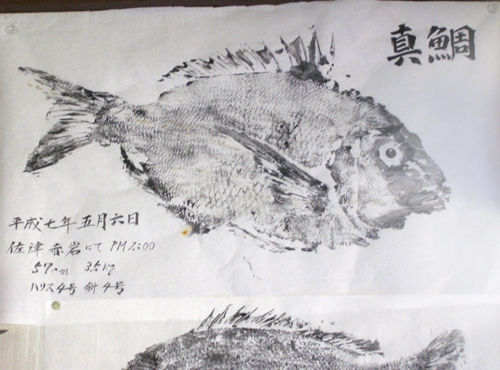 真鯛
平成七年五月六日
佐津赤岩にて PM2:00
57cm 3.5kg
ハリス4号 針4号